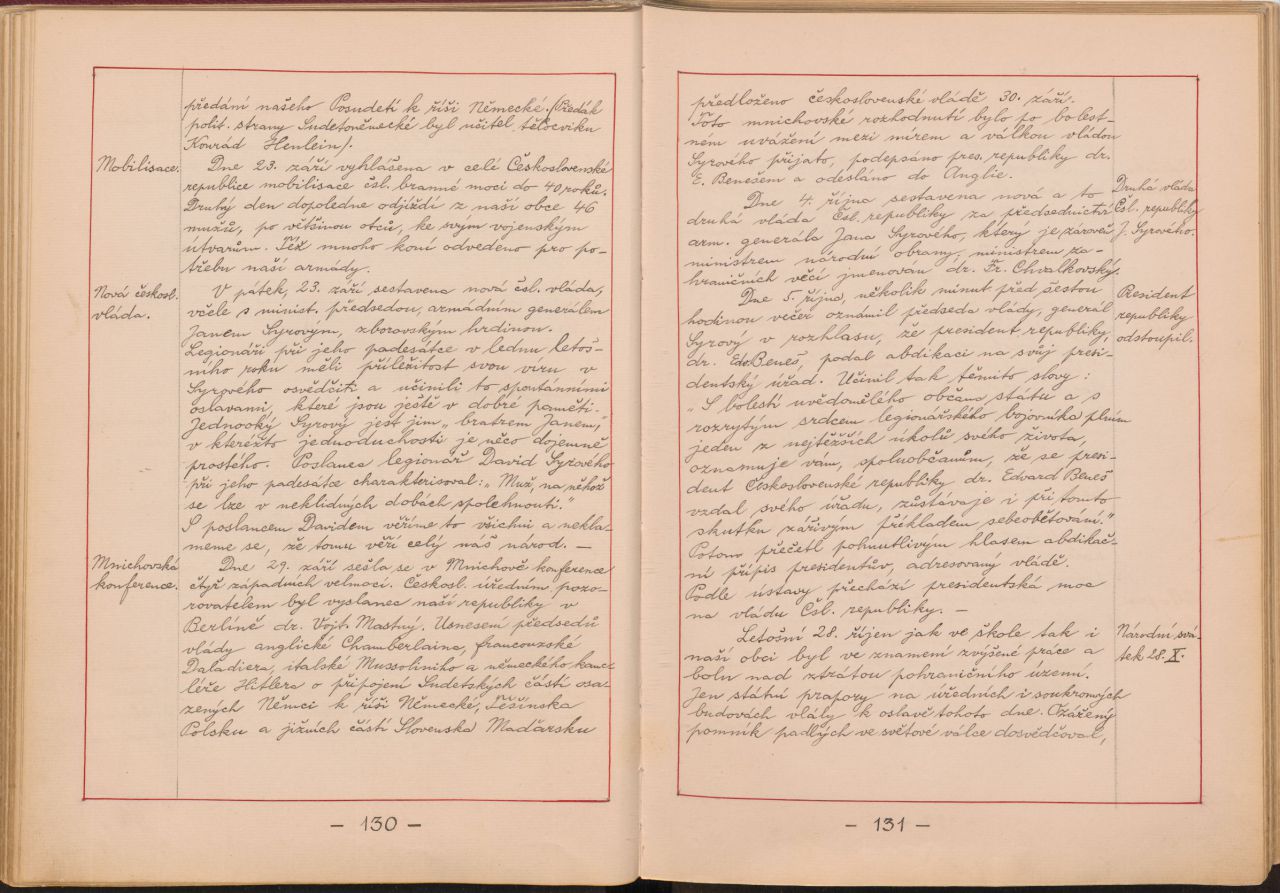 předání našeho Posudetí k říši Německé. (Předák
polit. strany Sudetoněmecké byl učitel tělocviku
Konrád Henlein).
Mobilisace.
Dne 23. září vyhlášena v celé Československé
republice mobilisace čsl. branné moci do 40 roků.
Druhý den dopoledne odjíždí z naší obce 46
mužů, po většinou otců, ke svým vojenským
útvarům. Též mnoho koní odvedeno pro po-
třebu naší armády.
Nová českosl.
vláda.
V pátek, 23. září sestavena nová čsl. vláda,
včele s minist. předsedou, armádním generálem
Janem Syrovým, zborovským hrdinou.
Legionáři při jeho padesátce v lednu letoš-
ního roku měli příležitost svou víru v
Syrového osvědčiti a učinili to spontánními
oslavami, které jsou ještě v dobré paměti.
Jednooký Syrový jest jim „bratrem Janem,"
v kteréžto jednoduchosti je něco dojemně
prostého. Poslanec legionář David Syrového
při jeho padesátce charakterisoval: „Muž, na něhož
se lze v neklidných dobách spolehnouti."
S poslancem Davidem věříme to všichni a nekla-
meme se, že tomu věří celý náš národ. —
Mnichovská
konference.
Dne 29. září sešla se v Mnichově konference
čtyř západních velmocí. Českosl. úředním pozo-
rovatelem byl vyslanec naší republiky v
Berlíně dr. Vojt. Mastný. Usnesení předsedů
vlády anglické Chamberlaina, francouzské
Daladiera, italské Mussoliniho a německého kanc-
léře Hitlera o připojení Sudetských částí osa-
zených Němci k říši Německé, Těšínska
Polsku a jižních částí Slovenska Maďarsku
— 130 —
předloženo československé vládě 30. září.
Toto mnichovské rozhodnutí bylo po bolest-
ném uvážení mezi mírem a válkou vládou
Syrového přijato, podepsáno pres. republiky dr.
E. Benešem a odesláno do Anglie.
Druhá vláda
Čsl. republiky
J. Syrového.
Dne 4. října sestavena nová a to
druhá vláda Čsl. republiky za předsednictví
arm. generála Jana Syrového, který je zároveň
ministrem národní obrany, ministrem za-
hraničních věcí jmenován dr. Fr. Chvalkovský.
President
republiky
odstoupil.
Dne 5. října, několik minut před šestou
hodinou večer oznámil předseda vlády, generál
Syrový v rozhlasu, že president republiky,
dr. Ed. Beneš, podal abdikaci na svůj presi-
dentský úřad. Učinil tak těmito slovy:
„S bolestí uvědomělého občana státu a s
rozrytým srdcem legionářského bojovníka plním
jeden z nejtěžších úkolů svého života,
oznamuje vám, spoluobčanům, že se presi-
dent Československé republiky dr. Edvard Beneš
vzdal svého úřadu, zůstávaje i při tomto
skutku zářivým příkladem sebeobětování."
Potom přečetl pohnutlivým hlasem abdikač-
ní přípis presidentův, adresovaný vládě.
Podle ústavy přechází presidentská moc
na vládu Čsl. republiky. —
Národní svá-
tek 28. X.
Letošní 28. říjen jak ve škole tak i
naší obci byl ve znamení zvýšené práce a
bolu nad ztrátou pohraničního území.
Jen státní prapory na úředních i soukromých
budovách vlály k oslavě tohoto dne. Ozářený
pomník padlých ve světové válce dosvědčoval,
— 131 —